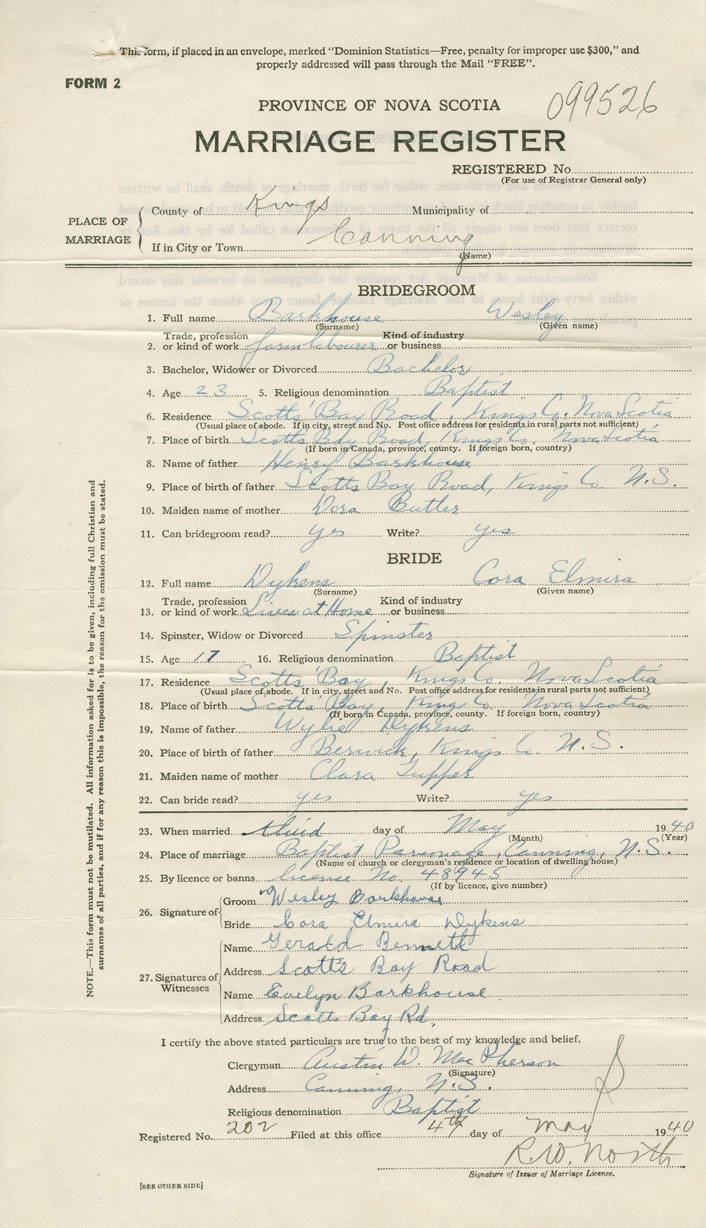 This form, if placed in an envelope, marked "Dominion Statistics—Free, penalty for improper use $300," and
properly addressed will pass through the Mail "FREE".
FORM 2
099526
PROVINCE OF NOVA SCOTIA
MARRIAGE REGISTER
REGISTERED No.
(For use of Registrar General only)
PLACE OF MARRIAGE
County of Kings Municipality of
If in City or Town Canning
(Name)
BRIDEGROOM
1. Full name Barkhouse Wesley
(Surname) (Given name)
2. Trade, profession or kind of work farm labourer Kind of industry or business
3. Bachelor, Widower or Divorced Bachelor
4. Age 23 5. Religious denomination Baptist
6. Residence Scotts' Bay Road, Kings Co. Nova Scotia
(Usual place of abode. If in city, street and No. Post office address for residents in rural parts not sufficient)
7. Place of birth Scotts Bay Road, Kings Co. Nova Scotia
(If born in Canada, province, county. If foreign born, country)
8. Name of father Henry Barkhouse
9. Place of birth of father Scotts Bay Road, Kings Co N.S.
10. Maiden name of mother Dora Butler
11. Can bridegroom read? yes Write? yes
BRIDE
12. Full name Dykens Cora Elmira
(Surname) (Given name)
13. Trade, profession or kind of work Lives at Home Kind of industry or business
14. Spinster, Widow or Divorced Spinster
15. Age 17 16. Religious denomination Baptist
17. Residence Scotts' Bay, Kings Co. Nova Scotia
(Usual place of abode. If in city, street and No. Post office address for residents in rural parts not sufficient)
18. Place of birth Scotts' Bay, Kings Co Nova Scotia
(If born in Canada, province, county. If foreign born, country)
19. Name of father Wylie Dykens
20. Place of birth of father Berwick, Kings Co N.S.
21. Maiden name of mother Clara Tupper
22. Can bride read? yes Write? yes
23. When married third day of May 1940
(Month) (Year)
24. Place of marriage Baptist Parsonage, Canning, N.S.
(Name of church or clergyman's residence or location of dwelling house)
25. By licence or banns license No. 48945
(If by licence, give number)
26. Signature of
Groom Wesley Barkhouse
Bride Cora Elmira Dykens
27. Signatures of Witnesses
Name Gerald Bennett
Address Scotts Bay Road
Name Evelyn Barkhouse
Address Scotts Bay Rd.
I certify the above stated particulars are true to the best of my knowledge and belief.
Clergyman Austin W. MacPherson
(Signature)
Address Canning, N.S.
Religious denomination Baptist
Registered No. 202 Filed at this office 4th day of May 1940
R.W. North
Signature of Issuer of Marriage Licence.
[SEE OTHER SIDE]
NOTE.—This form must not be mutilated. All information asked for is to be given, including full Christian and
surnames of all parties, and if for any reason this is impossible, the reason for the omission must be stated.